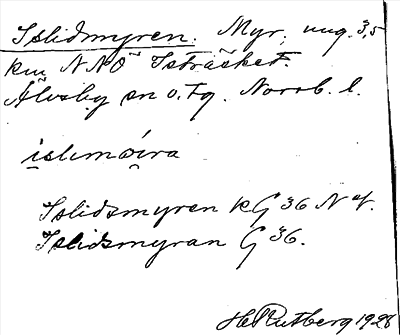 Islidmyren. Myr, ung. 3,5
km NNO Isträsket.
Älvsby sn o. Fg. Norrb. l.
islimöira
Islidsmyren kG 36 N of.
Islidsmyran G 36.
H Rutberg 1928